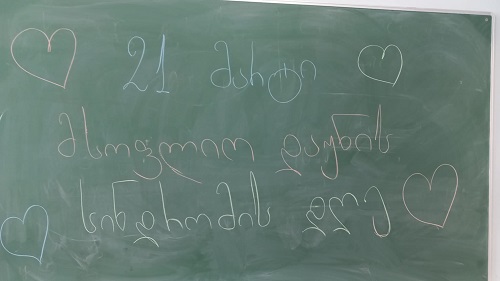 21 მარტი
მსოფლიო დაუნის
სინდრომის დღე